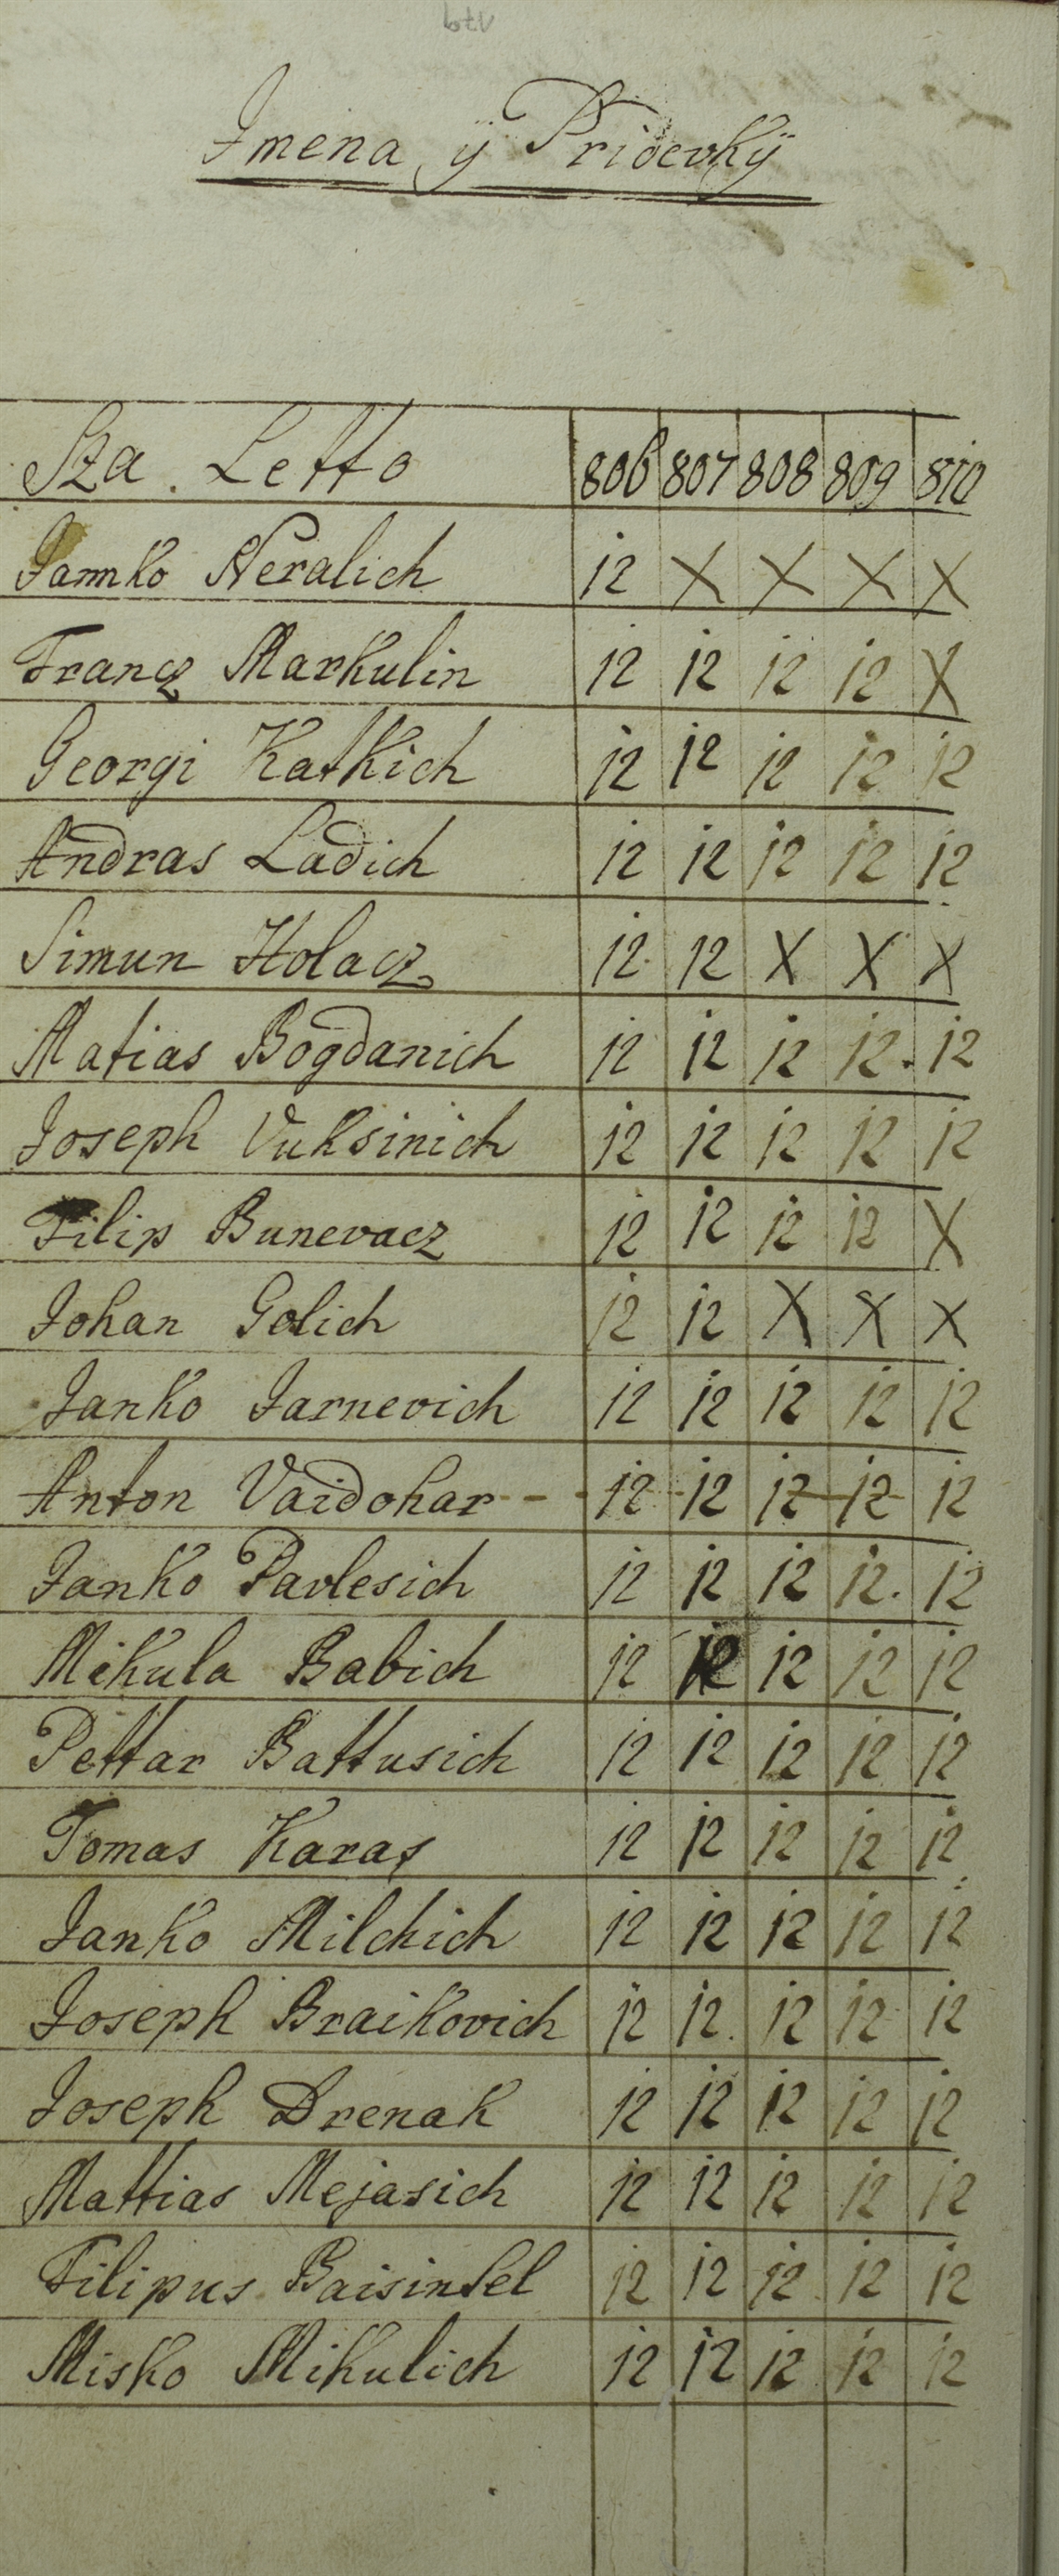 Imena ÿ Pridevkÿ
Sza Letto 806 807 808 809 810
Jamko Neralich 12 X X X X
Francz Markulin 12 12 12 12 X
Georgi Katkich 12 12 12 12 12
Andras Ladich 12 12 12 12 12
Simun Holacz 12 12 X X X
Matias Bogdanich 12 12 12 12 12
Joseph Vuksinich 12 12 12 12 12
Filip Bunevacz 12 12 12 12 X
Johan Golich 12 12 X X X
Janko Jarnevich 12 12 12 12 12
Anton Vaidohar 12 12 12 12 12
Janko Pavlesich 12 12 12 12 12
Mikula Babich 12 12 12 12 12
Pettar Battusich 12 12 12 12 12
Tomas Karas 12 12 12 12 12
Janko Milchich 12 12 12 12 12
Joseph Braikovich 12 12 12 12 12
Joseph Drenak 12 12 12 12 12
Mattias Mejasich 12 12 12 12 12
Filipus 12 12 12 12 12
Misko Mikulich 12 12 12 12 12